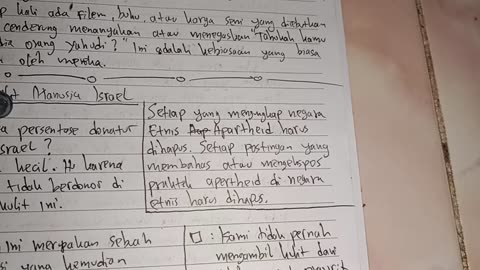 kali ada film, buku, atau karya seni yang disebutkan
cenderung menanyakan atau menegaskan "Tahukah kamu
dia orang yahudi?" Ini adalah kebiasaan yang biasa
oleh mereka.
Manusia Israel
persentase donatur
srael?
kecil. Karena
tidak berdonor di
kulit ini.
Setiap yang mengungkap negara
Etnis Apartheid harus
dihapus. Setiap postingan yang
membahas atau mengekspos
praktek apertheid di negara
etnis harus dihapus.
Ini merupakan sebuah
yang kemudian
: Kami tidak pernah
mengambil kulit dari